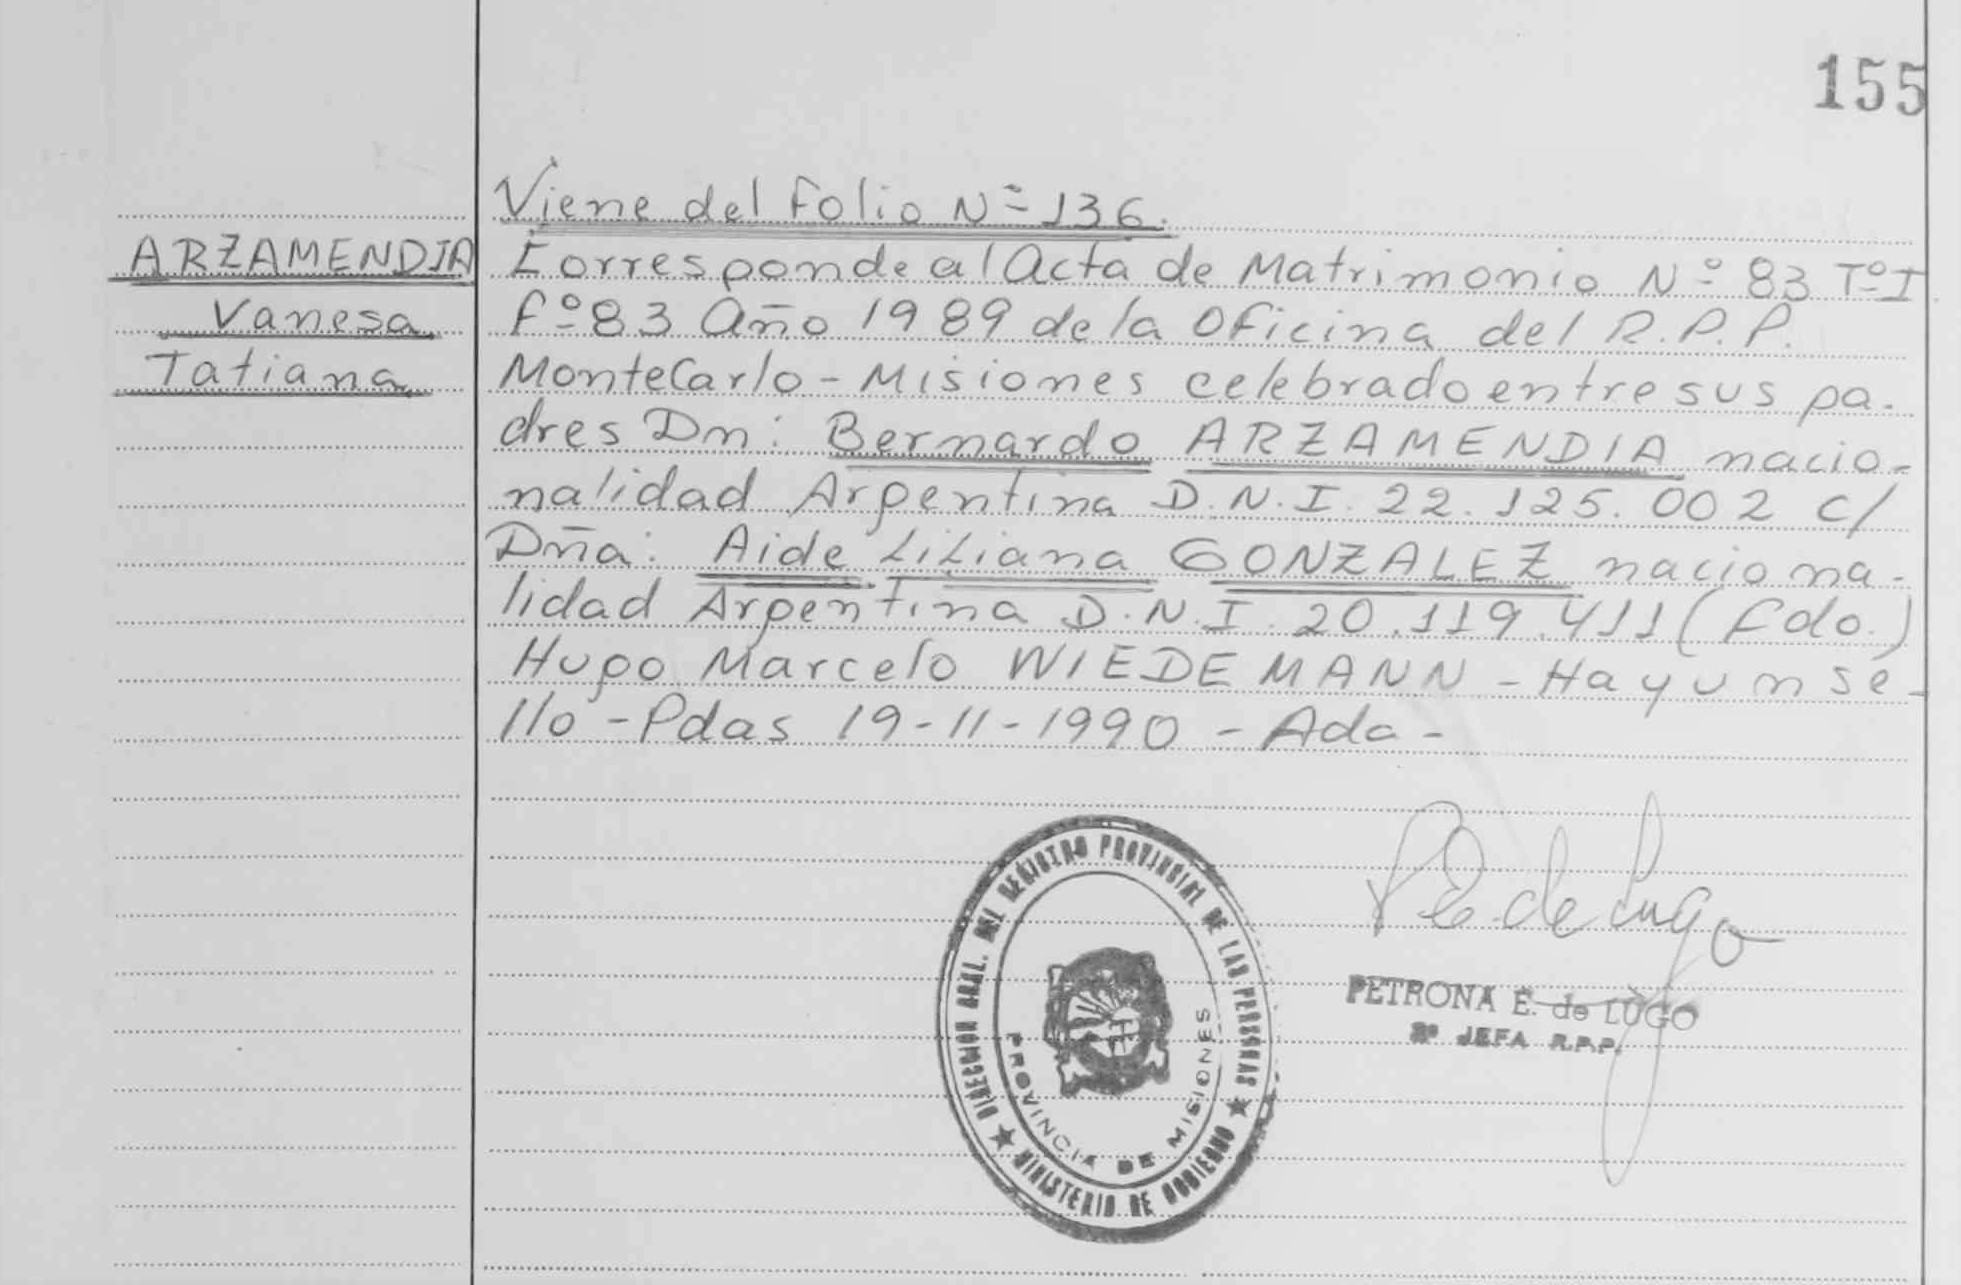 155
Viene del Folio Nº 136.
ARZAMENDIA
Vanesa
Tatiana
Corresponde al Acta de Matrimonio Nº 83 Tº I
fº 83 Año 1989 de la Oficina del R.P.P.
MonteCarlo - Misiones celebrado entre sus pa-
dres Dn: Bernardo ARZAMENDIA nacio-
nalidad Argentina D.N.I. 22.125.002 c/
Dña: Aide Liliana GONZALEZ naciona-
lidad Argentina D.N.I. 20.119.411 (Fdo.)
Hugo Marcelo WIEDEMANN - Hay un se-
llo - Pdas 19-11-1990 - Ada -
DIRECCION GRAL. DEL REGISTRO PROVINCIAL DE LAS PERSONAS
MINISTERIO DE GOBIERNO
PROVINCIA DE MISIONES
PE de Lugo
PETRONA E. de LUGO
2º JEFA R.P.P.